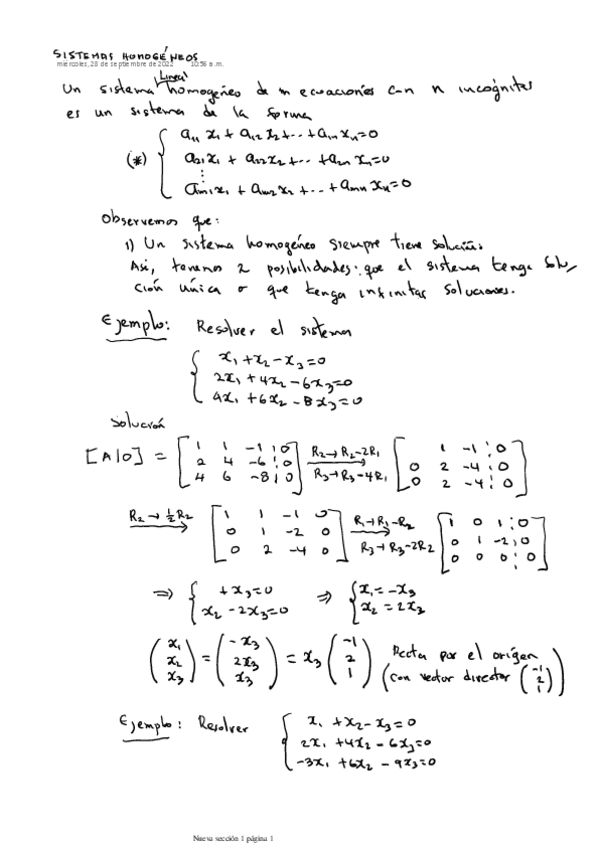 SISTEMAS HOMOGÉNEOS
miércoles, 28 de septiembre de 2022 10:56 a.m.
Lineal
Un sistema homogéneo de m ecuaciones con n incógnitas
es un sistema de la forma
(*) { a11 x1 + a12 x2 + ... + a1n xn = 0
a21 x1 + a22 x2 + ... + a2n xn = 0
⋮
am1 x1 + am2 x2 + ... + amn xn = 0
Observemos que:
1) Un sistema homogéneo siempre tiene solución.
Así, tenemos 2 posibilidades: que el sistema tenga solu,
ción única o que tenga infinitas soluciones.
Ejemplo: Resolver el sistema
{ x1 + x2 - x3 = 0
2x1 + 4x2 - 6x3 = 0
4x1 + 6x2 - 8x3 = 0
Solución
[A|0] = [ 1 1 -1 | 0 ; 2 4 -6 | 0 ; 4 6 -8 | 0 ] R2→R2-2R1 R3→R3-4R1 [ 1 -1 | 0 ; 0 2 -4 | 0 ; 0 2 -4 | 0 ]
R2→½R2 [ 1 1 -1 0 ; 0 1 -2 0 ; 0 2 -4 0 ] R1→R1-R2 R3→R3-2R2 [ 1 0 1 | 0 ; 0 1 -2 | 0 ; 0 0 0 | 0 ]
⇒ { + x3 = 0 ; x2 - 2x3 = 0 ⇒ { x1 = -x3 ; x2 = 2x3
( x1 ; x2 ; x3 ) = ( -x3 ; 2x3 ; x3 ) = x3 ( -1 ; 2 ; 1 ) Recta por el origen
(con vector director ( -1 ; 2 ; 1 ))
Ejemplo: Resolver { x1 + x2 - x3 = 0
2x1 + 4x2 - 6x3 = 0
-3x1 + 6x2 - 9x3 = 0
Nueva sección 1 página 1